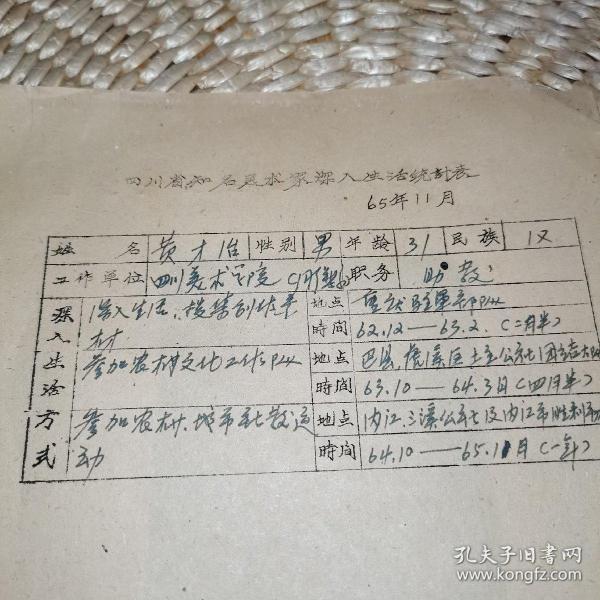 四川省知名美术家深入生活统計表
65年11月
姓名 黄才治 性別 男 年龄 31 民族 汉
工作单位 四川美术学院 职务 助教
深入生活方式
深入生活、搜集創作素材 地点 重庆驻軍部队
時间 62.12——63.2.(二月半)
参加农村文化工作队 地点 巴县、虎溪区土主公社团结大队
時间 63.10——64.3月(四月半)
参加农村、城市社教运动 地点 内江、三溪公社及内江市胜利
時间 64.10——65.11月(一年)
孔夫子旧书网
www.kongfz.com